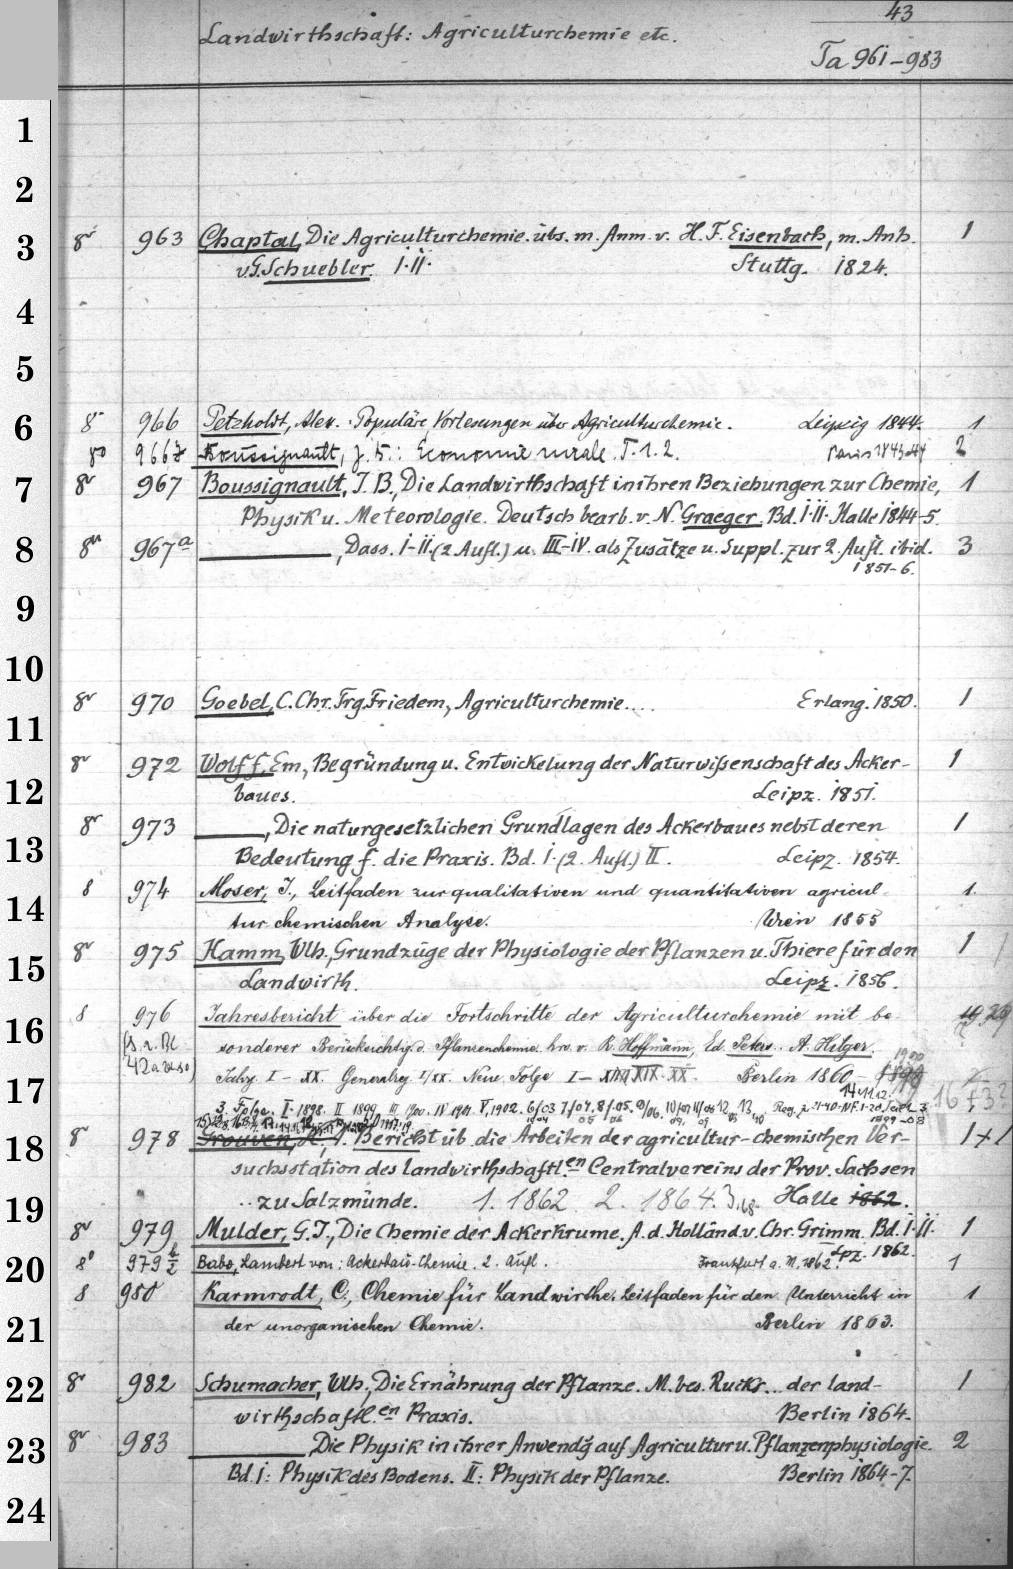 43
Landwirthschaft: Agriculturchemie etc.
Ta 961–983
1
2
3
8° 963 Chaptal, Die Agriculturchemie. übs. m. Anm. v. H. F. Eisenbach, m. Anh. 1
v. G. Schuebler. I.II. Stuttg. 1824.
4
5
6
8° 966 Petzholdt, Alex. Populäre Vorlesungen über Agriculturchemie. Leipzig 1844. 1
8° 966 Boussignault, J. B.: Economie rurale. T. 1. 2. Paris 1843-44 2
7
8° 967 Boussignault, J. B., Die Landwirthschaft in ihren Beziehungen zur Chemie, 1
Physik u. Meteorologie. Deutsch bearb. v. N. Graeger. Bd. I-II. Halle 1844-5.
8
8° 967a ———, Dass. I-II. (2 Aufl.) u. III-IV. als Zusätze u. Suppl. zur 2. Aufl. ibid. 3
1851-6.
9
10
8° 970 Goebel, C. Chr. Trg. Friedem, Agriculturchemie.... Erlang. 1850. 1
11
8° 972 Wolff, Em, Begründung u. Entwickelung der Naturwissenschaft des Acker- 1
12
baues. Leipz. 1851.
8° 973 ———, Die naturgesetzlichen Grundlagen des Ackerbaues nebst deren 1
13
Bedeutung f. die Praxis. Bd. I. (2. Aufl.) II. Leipz. 1854.
8 974 Moser, I., Leitfaden zur qualitativen und quantitativen agricul- 1.
14
tur chemischen Analyse. Wien 1855
8° 975 Hamm, Wlh., Grundzüge der Physiologie der Pflanzen u. Thiere für den 1
15
Landwirth. Leipz. 1856.
8 976 Jahresbericht über die Fortschritte der Agriculturchemie mit be-
16
sonderer Berücksichtig. d. Pflanzenchemie. hrs. v. R. Hoffmann, Ed. Peters. A. Hilger.
Jahrg. I – XX. Generalreg. I/XX. Neue Folge I – XIX. XX. Berlin 1860 –
17
3. Folge. I. 1898. II 1899. III. 1900. IV. 1901. V. 1902.
18
8° 978 Grouven, H., Bericht üb. die Arbeiten der agricultur-chemischen Ver- 1+1
suchsstation des landwirthschaftl.en Centralvereins der Prov. Sachsen
19
zu Salzmünde. 1. 1862 2. 1864. 3. 68. Halle 1862.
8° 979 Mulder, G. J., Die Chemie der Ackerkrume. A. d. Holländ. v. Chr. Grimm. Bd. I-II. 1
Lpz. 1862.
20
8° 979 Babo, Lambert von: Ackerbau-Chemie. 2. Aufl. Frankfurt a. M. 1862. 1
8 980 Karmrodt, C., Chemie für Landwirthe. Leitfaden für den Unterricht in 1
21
der unorganischen Chemie. Berlin 1863.
22
8° 982 Schumacher, Wlh., Die Ernährung der Pflanze. M. bes. Rucks... der land- 1
wirthschaftl.en Praxis. Berlin 1864.
23
8° 983 ——— Die Physik in ihrer Anwendg auf Agricultur u. Pflanzenphysiologie. 2
Bd. I: Physik des Bodens. II: Physik der Pflanze. Berlin 1864-7.
24